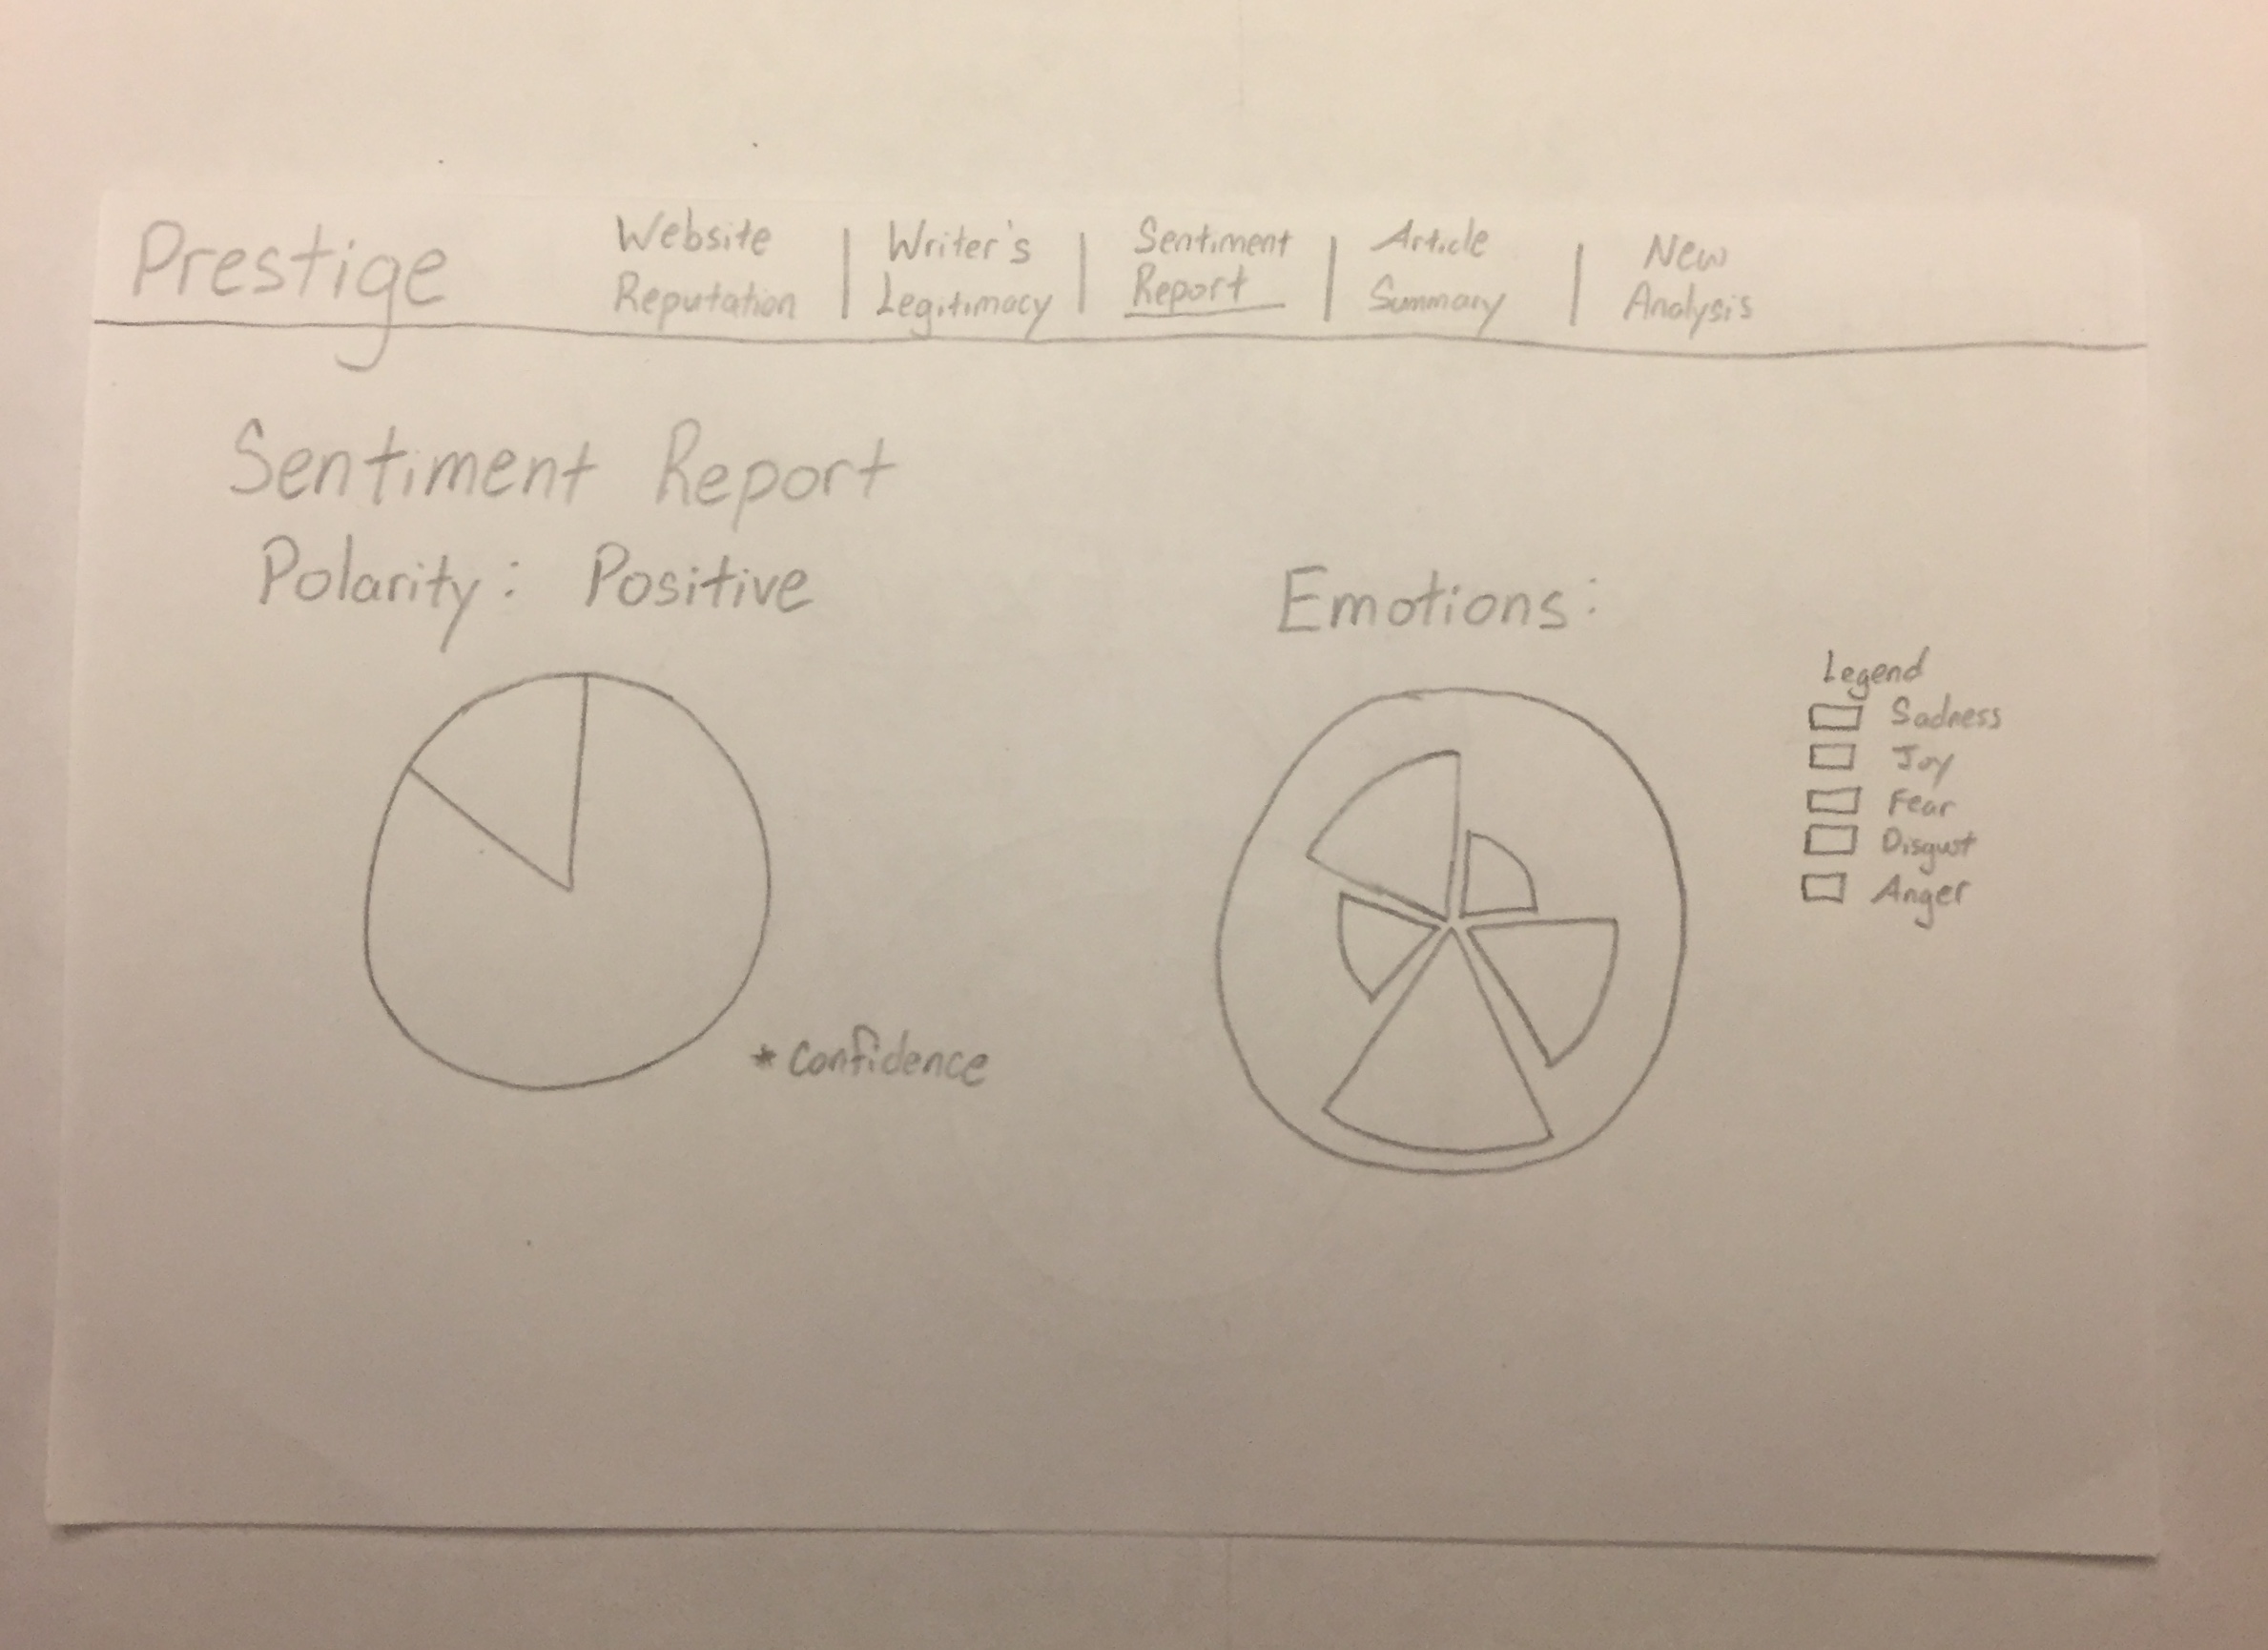 Prestige
Website
Reputation
Writer's
Legitimacy
Sentiment
Report
Article
Summary
New
Analysis
Sentiment Report
Polarity: Positive
* Confidence
Emotions:
Legend
Sadness
Joy
Fear
Disgust
Anger